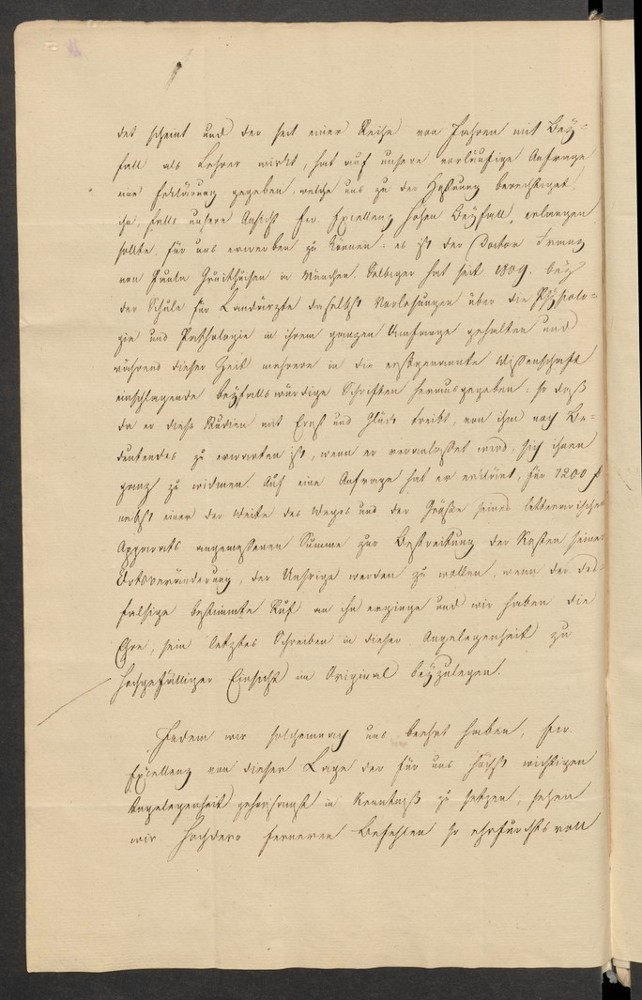 det scheint und der seit einer Reihe von Jahren mit Bey-
fall als Lehrer wirkt, hat auf unsere vorläufige Anfrage
eine Erklärung gegeben, welche uns zu der Hoffnung berechtiget,
ihn, falls unsere Absicht Ew. Excellenz hohen Beyfall erlangen
sollte, für uns erwerben zu können: es ist der Doctor Franz
von Paula Gruithuisen in München. Selbiger hat seit 1809. bey
der Schule für Landärzte daselbst Vorlesungen über die Physiolo-
gie und Pathologie in ihrem ganzen Umfange gehalten und
während dieser Zeit mehrere in die erstgenannte Wissenschaft
einschlagende beyfallswürdige Schriften herausgegeben: so daß
da er diese Studien mit Ernst und Glück treibt, von ihm noch Be-
deutendes zu erwarten ist, wenn er veranlaßet wird, sich ihnen
ganz zu widmen. Auf eine Anfrage hat er erklärt, für 1200 f
nebst einer der Weite des Weges und der Größe seines litterarischen
Apparats angemessenen Summe zur Bestreitung der Kosten seiner
Ortsveränderung, der Unsrige werden zu wollen, wenn der
bestimmte Ruf an ihn erginge und wir haben die
Ehre, sein letztes Schreiben in dieser Angelegenheit zu
hochgefälliger Einsicht im Original beyzulegen.
Indem wir solchemnach uns beehrt haben, Ew.
Excellenz von dieser Lage der für uns höchst wichtigen
Angelegenheit gehorsamst in Kenntniß zu setzen, sehen
wir Hochdero ferneren Befehlen so ehrfurchtsvoll